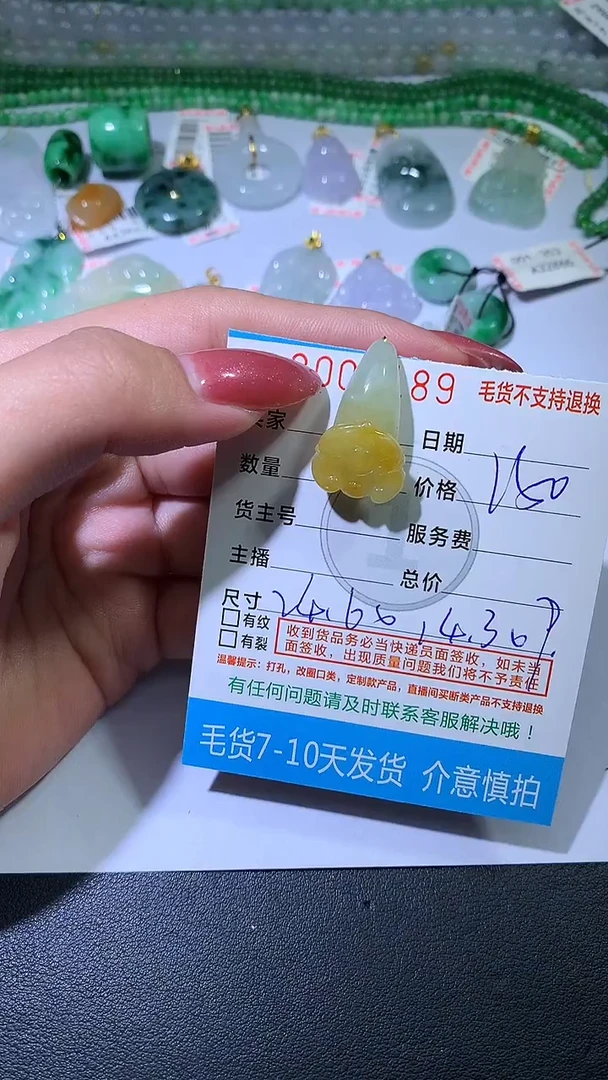 89 毛货不支持退换
日期
数量 价格 150
货主号 服务费
主播 总价
尺寸
有纹
有裂
收到货品务必当快递员面签收，如未当
面签收，出现质量问题我们将不予责任
温馨提示：打孔，改圈口类，定制款产品，直播间买断类产品不支持退换
有任何问题请及时联系客服解决哦！
毛货7-10天发货 介意慎拍